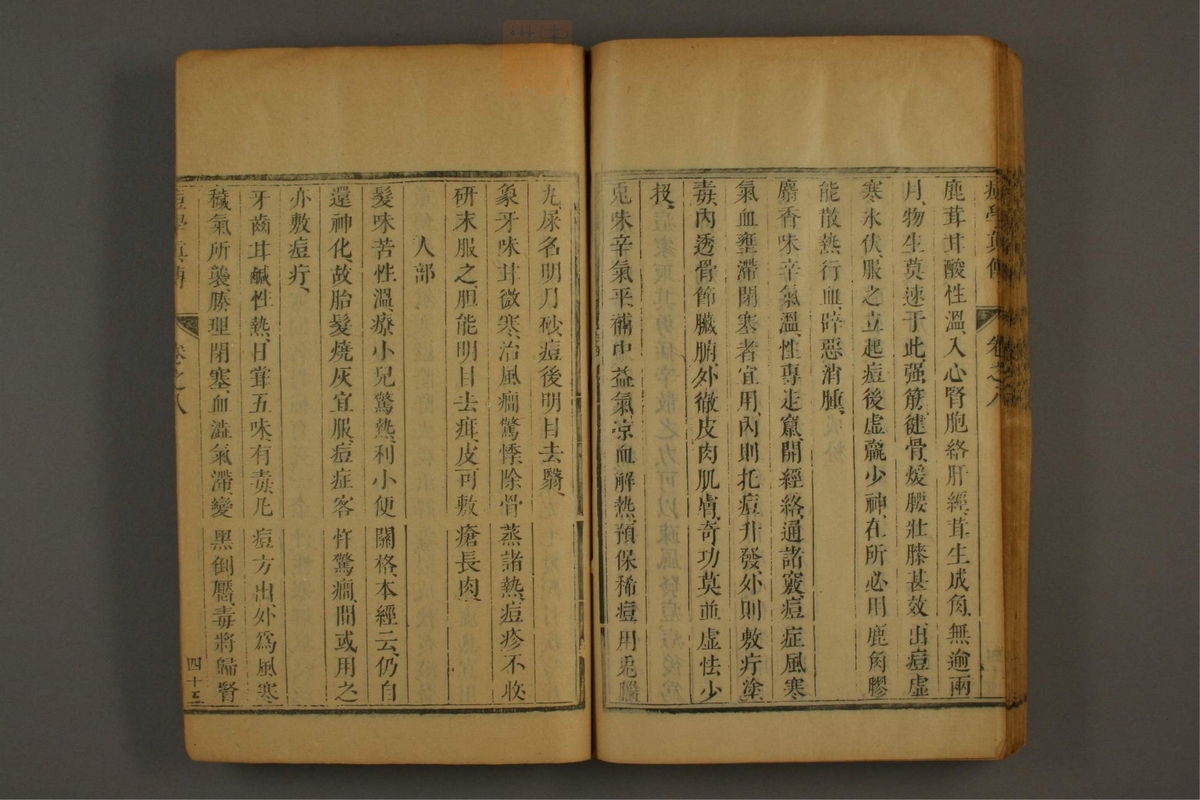 痘學真傳 卷之八
鹿茸甘酸性溫入心腎胞絡肝經茸生成角無逾兩
月物生莫速于此强筋健骨煖腰壯膝甚效出痘虛
寒氷伏服之立起痘後虛羸少神在所必用鹿角膠
能散熱行血辟惡消腫
麝香味辛氣溫性專走竄開經絡通諸竅痘症風寒
氣血壅滯閉塞者宜用內則托痘升發外則敷疔塗
毒內透骨節臟腑外徹皮肉肌膚奇功莫並虛怯少
投
兎味辛氣平補中益氣凉血解熱預保稀痘用兎腦
九尿名明月砂痘後明目去翳
象牙味甘微寒治風癎驚悸除骨蒸諸熱痘疹不收
研末服之胆能明目去疳皮可敷瘡長肉
人部
髮味苦性溫療小兒驚熱利小便關格本經云仍自
還神化故胎髮燒灰宜服痘症客忤驚癎間或用之
亦敷痘疔
牙齒甘鹹性熱日茸五味有毒凡痘方出外爲風寒
穢氣所襲腠理閉塞血澁氣滯變黑倒靨毒將歸腎
痘學真傳 卷之八 四十三